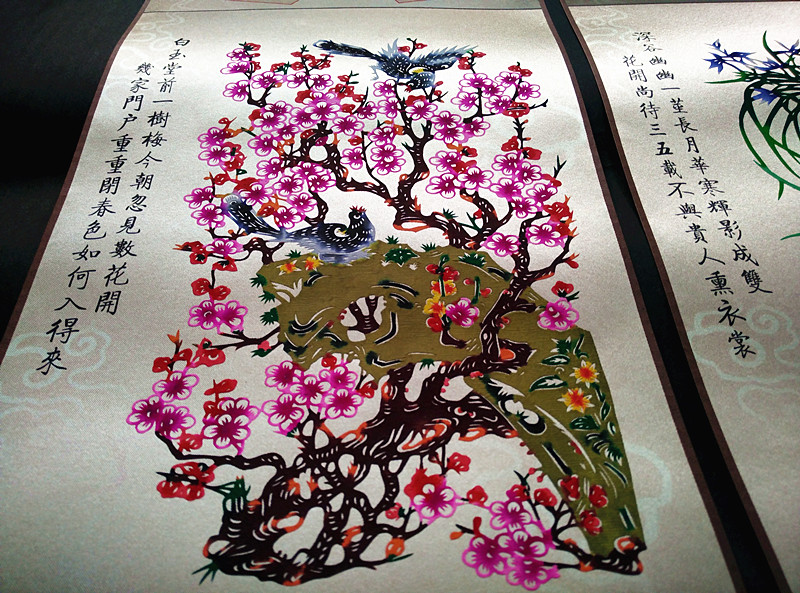 白玉堂前一樹梅今朝忽見數花開
幾家門户重重閉春色如何入得來
深谷幽幽一莖長月華寒輝影成雙
花開尚待三五載不與貴人熏衣裳